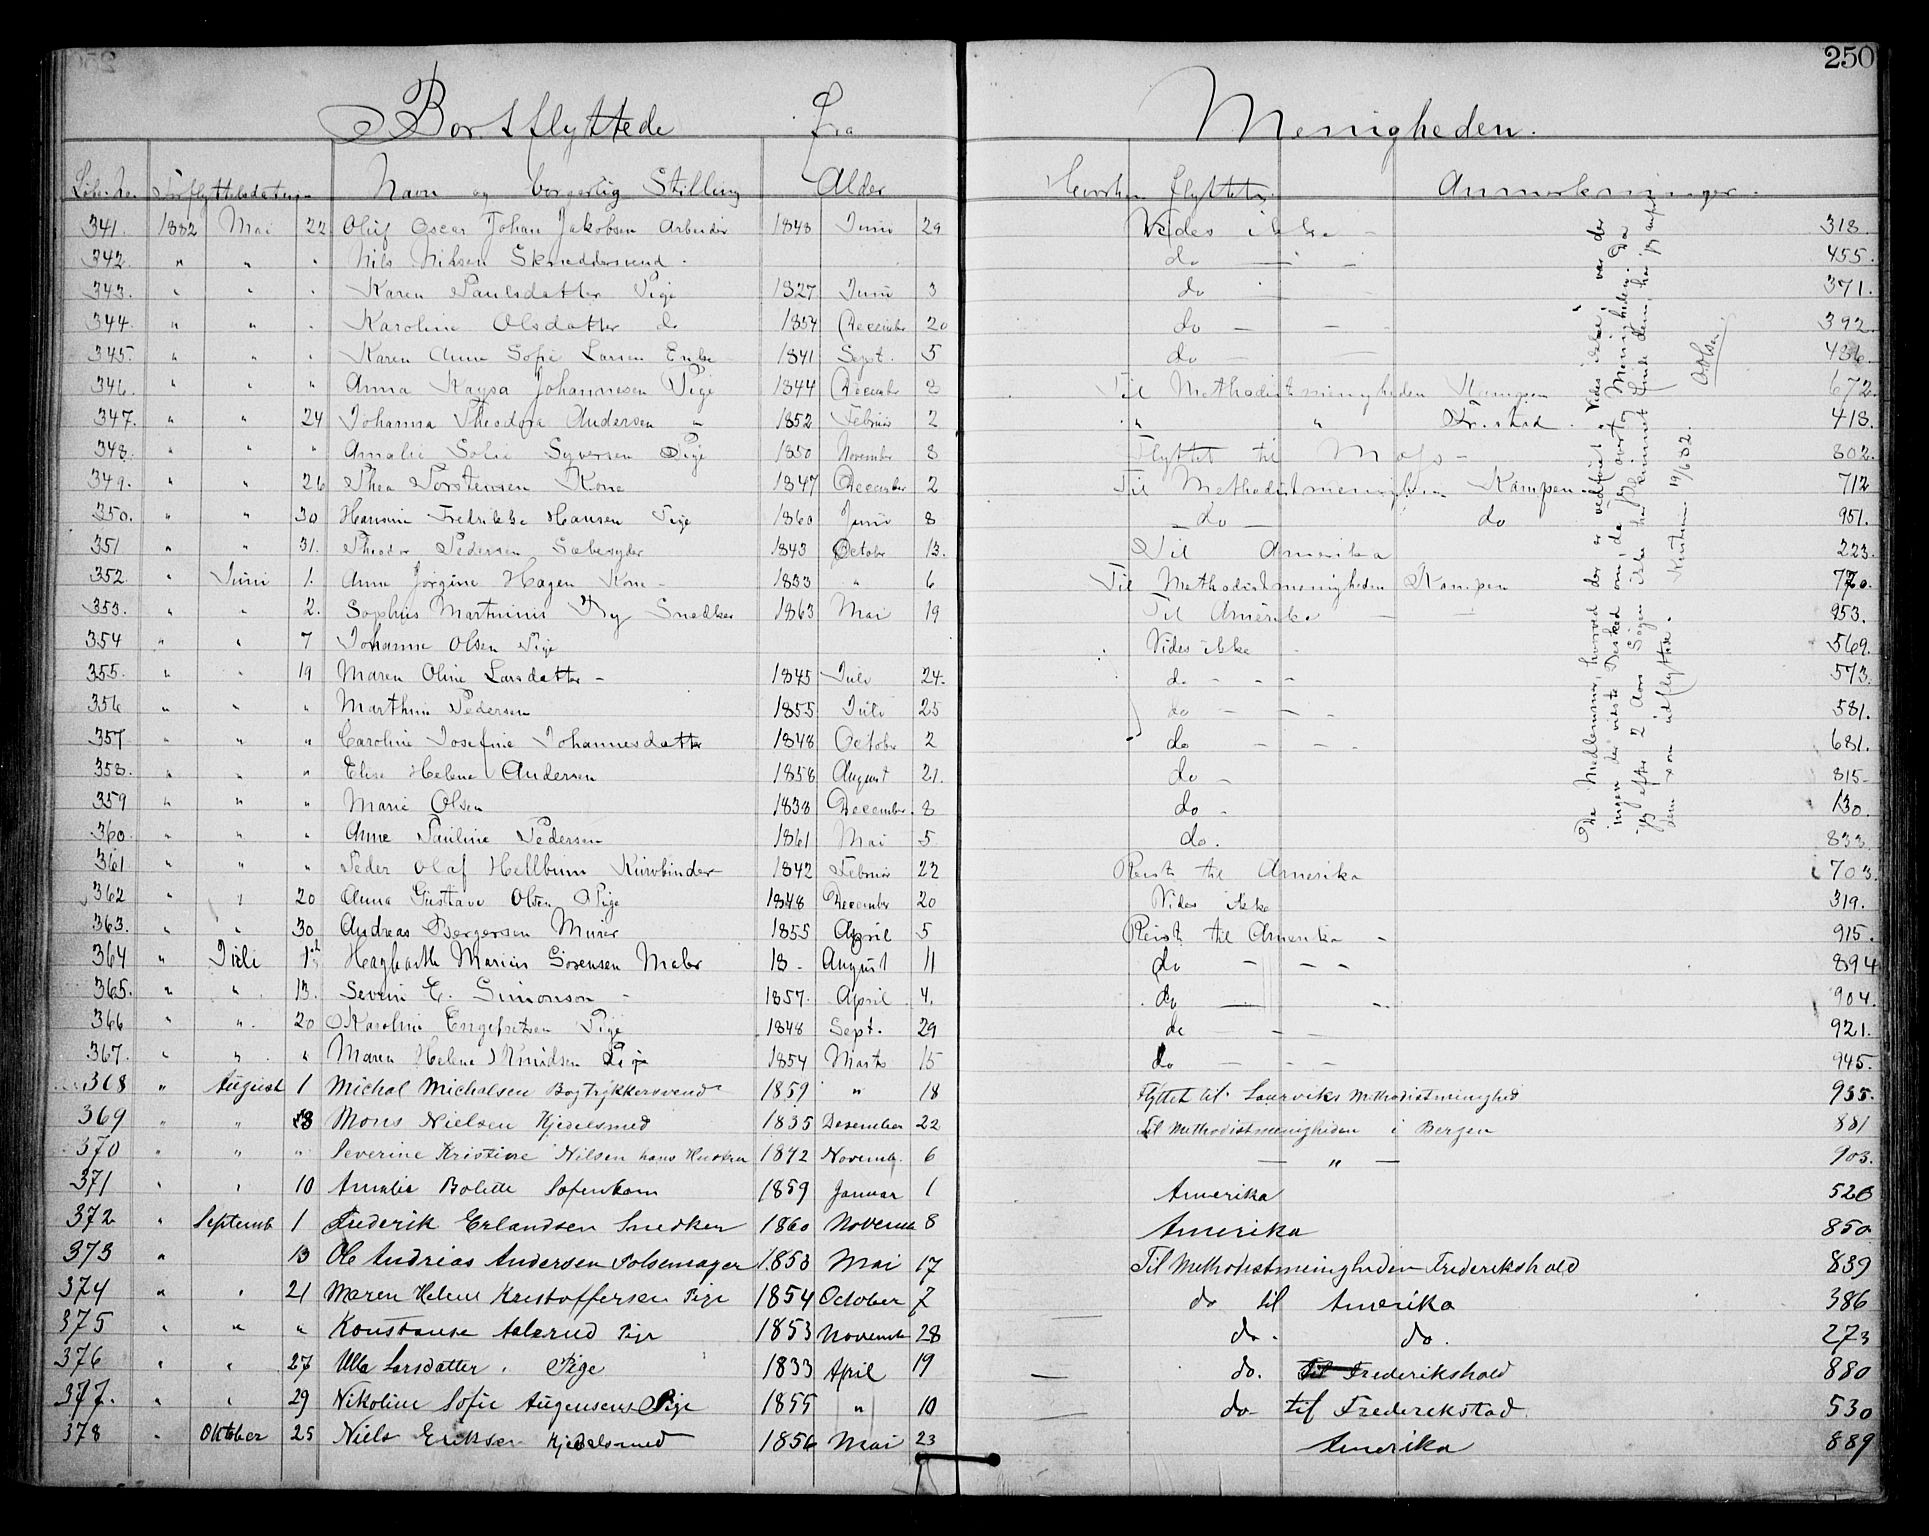 250
Bortflyttede fra Menigheden.
Löbe. No Forflyttelsdatum Navn og borgerlig Stilling Alder Hvorhen flyttet Anmærkninger.
341. 1882 Mai 22 Oluf Oscar Johan Jakobsen Arbeider 1848 Juni 29 Vides ikke - 318.
342. " " " Nils Nilsen Skreddersvend. do - - 455.
343. " " " Karen Paulsdatter Pige 1827 Juni 3 do - - 371.
344. " " " Karoline Olsdatter do 1854 December 20 do - - 392.
345. " " " Karen Anne Sofie Larsen Enke 1841 Sept. 5 do - - 436.
346. " " " Anna Kaysa Johannesen Pige 1844 December 8 Til Methodistmenigheden Kampen 672.
347. " " 24 Johanna Theodora Andersen " 1852 Februar 2 " " Fr.stad. 418.
348. " " " Amalie Sofie Syversen Pige 1850 November 8 Flyttet til Moss - 802.
349. " " 26 Thea Torstensen Kone 1847 December 2 Til Methodistmenigheden Kampen. 712
350. " " 30 Hansine Fredrikke Hansen Pige 1860 Juni 8 - do - do 951.
351 " " 31. Theodor Pedersen Sæbesyder 1843 October 13. Til Amerika 223.
352. " Juni 1. Anne Jørgine Hagen Kone - 1833 " 6 Til Methodistmenigheden Kampen 770.
353. " " 2. Sophus Martinius Fry Snedker 1863 Mai 19 Til Amerika - - 953.
354 " " 7 Johanne Olsen Pige Vides ikke - 569.
355. " " 19 Maren Oline Larsdatter - 1845 Juli 24. do - - - 573.
356 " " " Marthine Pedersen 1855 Juli 25 do - - - 581.
357 " " " Caroline Josefine Johannesdatter 1848 October 2 do - - - 681.
358. " " " Elise Helene Andersen 1858 August 21. do - 815-
359 " " " Marie Olsen 1838 December. 8 do - 130.
360. " " " Anne Pauline Pedersen 1861 Mai 5 do. 833
361 " " " Peder Olaf Hellbum Kurvbinder 1842 Februar 22 Reist til Amerika 703.
362 " " 20 Anna Gustava Olsen Pige 1848 December 20 Vides ikke 319.
363. " " 30 Andreas Bergersen Murer 1855 April 5 Reist til Amerika - 915.
364 " Juli 1st Hagbarth Marius Sørensen Maler 18- August 11 do - - - 894
365. " " 13. Severin E. Simonson - 1857. April 4. do - - 904.
366 " " 20 Karoline Engebretsen Pige 1848 Sept. 29 do - - 921.
367. " " " Maren Helene Knudsen Pige 1854 Marts 15 do - - - 945.
368 " August 1 Michal Michalsen Bogtrykkersvend 1859 " 18 Flyttet til Laurviks Methodistmenighed 935.
369 " " 8 Mons Nielsen Kjedelsmed 1835 Desember 22 Til Methodistmenigheden i Bergen 881
370 " " " Severine Kristine Nilsen hans Hustru 1842 Novemb. 6 - " - 903.
371 " " 10 Amalie Bolette 1859 Januar 1 Amerika 526
372 " Septemb 1 Frederik Erlandsen Snedker 1860 Novemb 8 Amerika 850
373 " 13 Ole Andreas Andersen Polsemager 1853 Mai 17 Til Methodistmenigheden Frederikshald 839
374 " " 21 Maren Helene Kristoffersen Pige 1854 October 7 do til Amerika 386
375 " " " Konstanse Aalerud Pige 1853 Novemb 28 do. do. 273
376 " " 27 Ulla Larsdatter. Pige 1833 April 19 do. Til Frederikshald 880
377. " " 29 Nikoline Sofie Augensens Pige 1855 " 10 do til Frederikstad. 530
378 " Oktober 25 Niels Eriksen Kjedelsmed 1856 Mai 23 Amerika 889
De Medlemmer, hvorved der er vedføiet "Vides ikke", var der
ingen der vidste Besked om, da jeg overtog Menigheden. Da
jeg efter 2 Aars Søgen ikke har kunnet finde dem, har jeg anført
dem som udflyttede. Kristiania 19/6 82.
A. Olsen